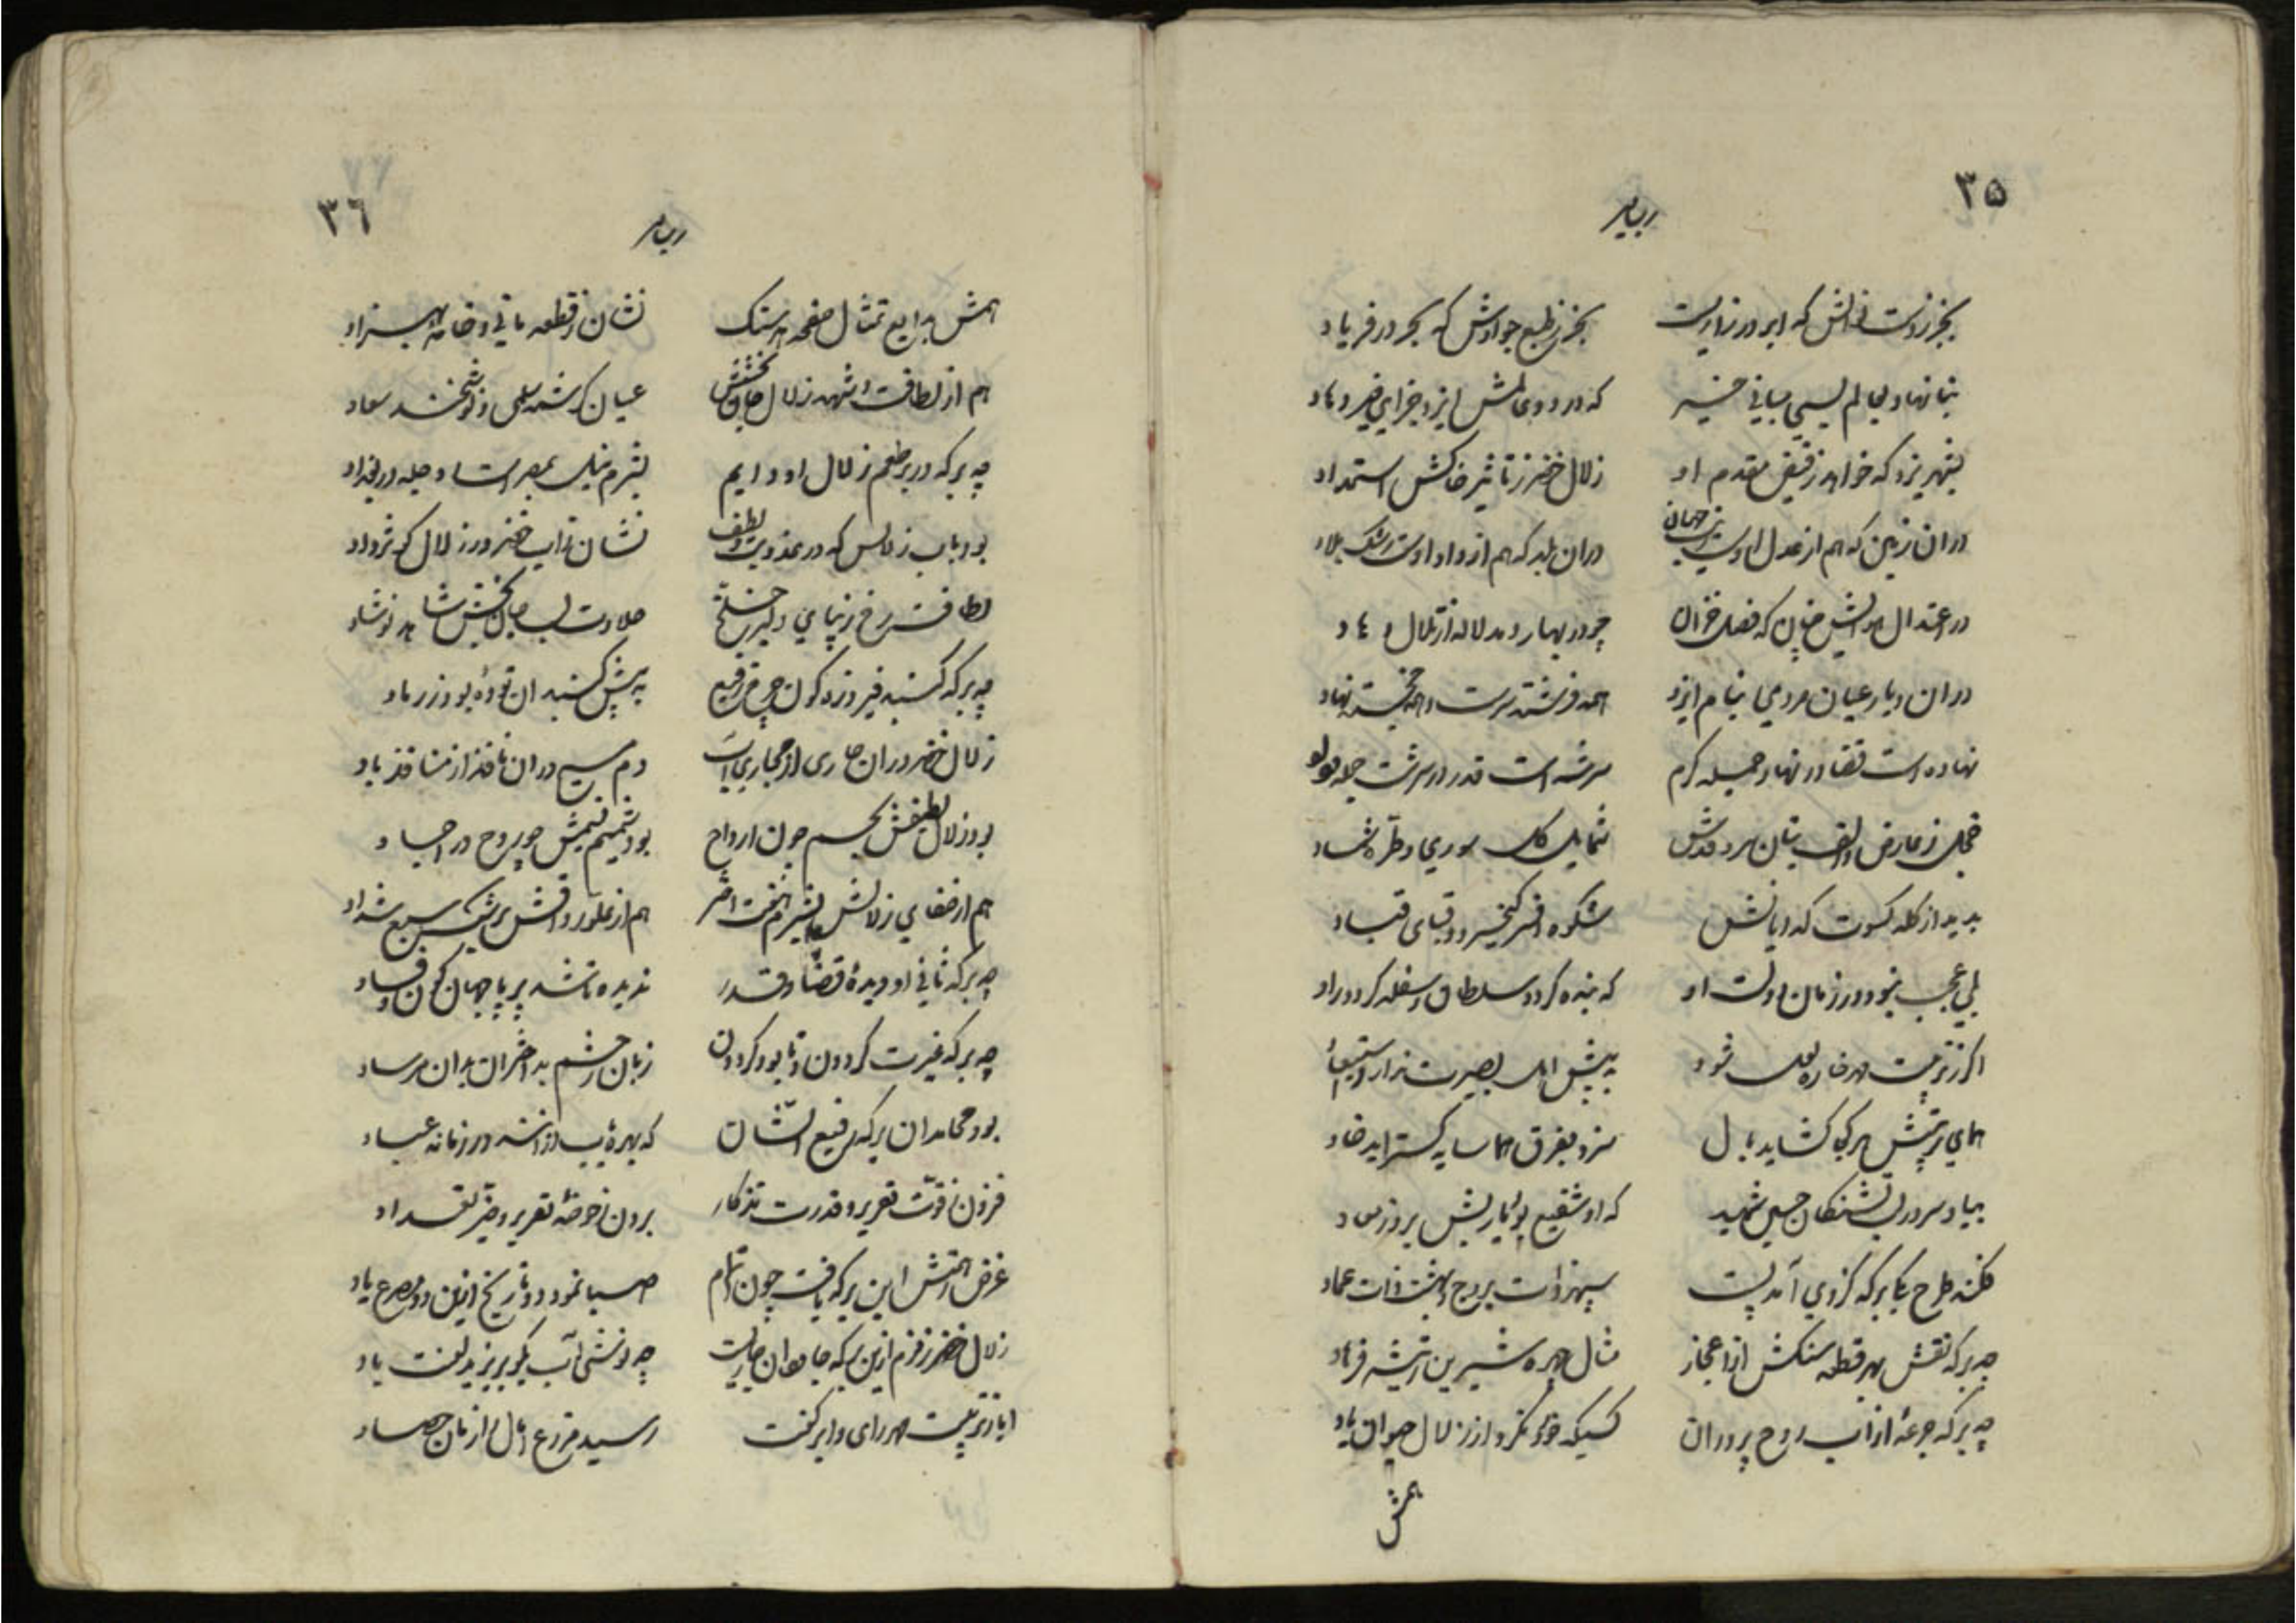 ۳۵
بجز ز دست که ابر در
بجز ز طبع جوادش که بحر در فریاد
که در دو
بشهر یزد که خواهد ز فیض مقدم او
زلال خضر ز تاثیر خاکش استمداد
دران زمین که هم از عدل اوست
دران بلد که هم از داد اوست رشک بلاد
در اعتدال هوایش چنان که فصل خزان
چو در بهار دمد لاله از تلال و
دران دیار عیان مردمی بنام ایزد
همه فرشته سرشت و همه خجسته نهاد
نهاده است قضا در نهاد جمله کرم
سرشته است قدر در سرشت جمله
خجل ز عارض و زلف بتان سرو قدش
شمایل گل سوری و طره شمشاد
پدید از کله و کسوت گدایانش
شکوه افسر کیخسرو و قبای قباد
بلی عجب نبود در زمان دولت او
که بنده گردد سلطان و سفله گردد راد
اگر ز تربیت مهر خاره لعل شود
به پیش اهل بصیرت ندارد استبعاد
همای تربیتش هر کجا گشاید بال
سزد بفرق هما سایه گسترد خاد
بیاد سرور لب تشنگان حسین شهید
که او شفیع بود یار بش بروز معاد
فکند طرح یکی برکه کز وی آمد پست
سپهر ذات بروج و بهشت ذات عماد
چه برکه نقش بهر قطعه سنگش از اعجاز
مثال چهره شیرین ز تیشه فرهاد
چه برکه جرعهٔ از آب روح پرور آن
کسیکه خورد نکرد از زلال حیوان یاد
همش
۳٦
همش بدایع تمثال صفحه هر سنگ
نشان ز قطعه مانی و خامه بهزاد
هم از لطافت و شهد زلال جان بخشش
عیان کرشمه سلمی و نوشخند سعاد
چه برکه در بر طعم زلال او دایم
بشرم نیل بمصر است و دجله در بغداد
بود باب زلالش که در عذوبت و لطف
نشان ز آب خضر در زلال کوثر داد
لطافت رخ زیبای دلبر خلخ
حلاوت لب جان بخش شاهد نوشاد
چه برکه گنبد فیروزه گون چرخ رفیع
به پیش گنبد آن توده بود ز رماد
زلال خضر دران جاری از مجاری آب
دم مسیح دران نافذ از منافذ باد
بود زلال لطیفش بجسم چون ارواح
بود شمیم نسیمش چو روح در اجساد
هم از صفای زلالش بشرم هفت اختر
هم از علو رواقش برشک سبع شداد
چه برکه ثانی او دیدهٔ قضا و قدر
ندیده تا شده بر پا جهان کون و فساد
چه برکه غیرت گردون و تا بود گردون
زیان ز چشم بد اختران بدان مرساد
بود محامد آن برکه رفیع الشان
که بهره یاب از آنند در زمانه عباد
فزون ز قوت تقریر و قدرت تذکار
برون ز حوصله تقریر و حیز تعداد
غرض ز همتش این برکه یافت چون اتمام
صبا نمود دو تاریخ ازین دو مصرع یاد
زلال خضر ز زمزم ازین برکه جاودان جاریست
چه نوشی آب بگو بر یزید لعنت باد
ایا ز تربیت مهر رای و ابر کفت
رسید مزرع آمال را زمان حصاد